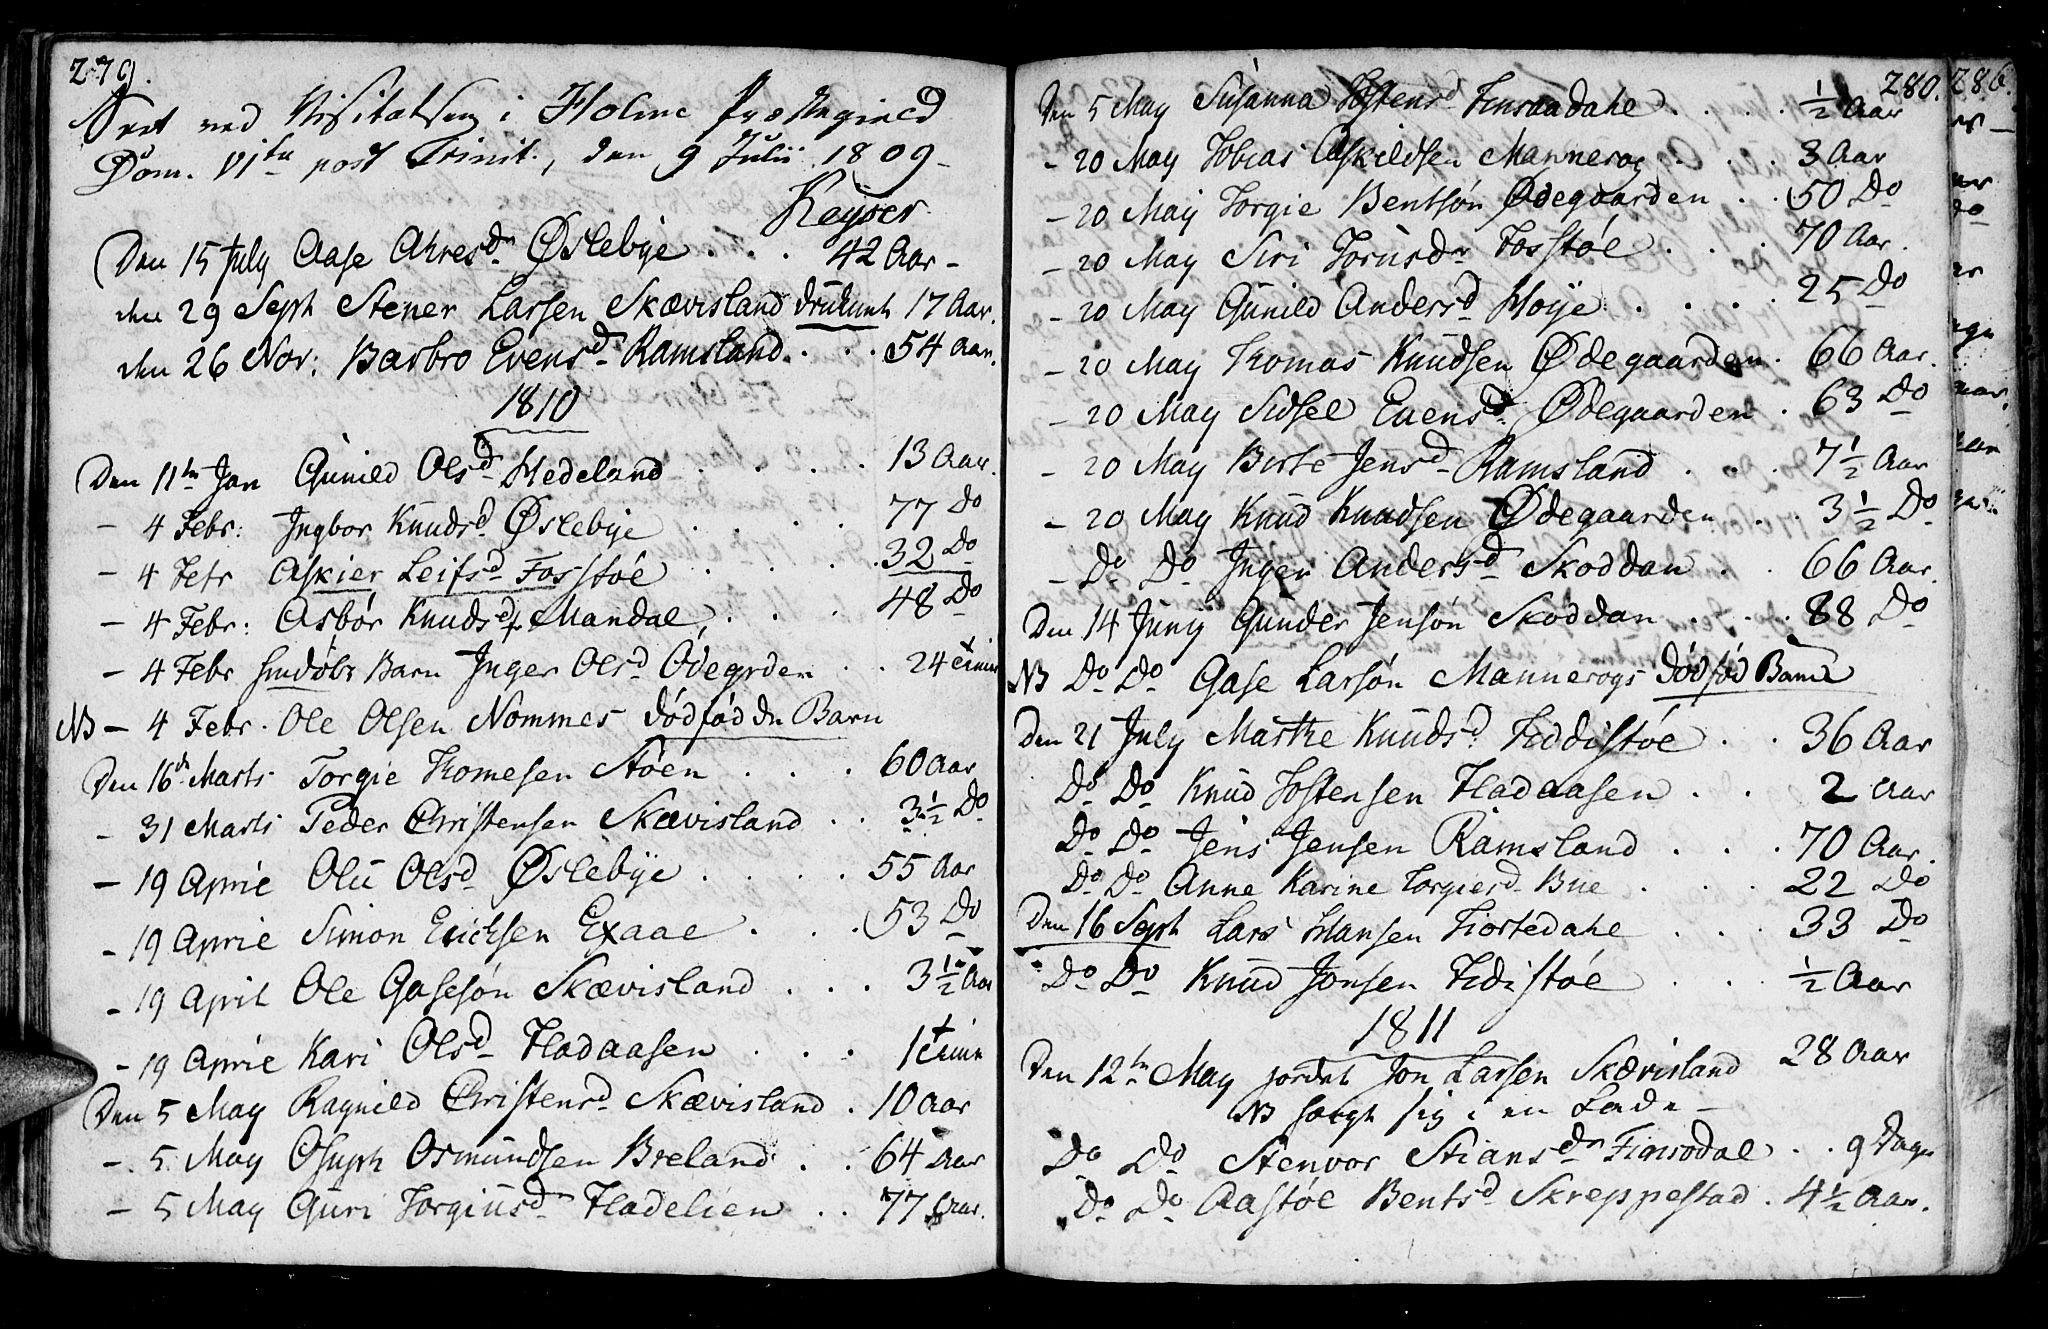 279.
Seet ved Visitatsen i Holme Præstegield
Dom. VIta post Trinit., den 9 Julii 1809 –
Keyser
Den 15 July Aase Ahresdr Øslebye . . . 42 Aar –
den 29 Septr Stener Larsen Skævisland druknet 17 Aar.
den 26 Nov: Barbro Evensd Ramsland . . . 54 Aar.
1810
Den 11te Jan Gunild Olsd Hedeland . . . . 13 Aar.
– 4 Febr: Ingbor Knudsd Øslebye . . . . 77 Do
– 4 Febr Askier Leifsd Fosstøe . . . . 32 Do
– 4 Febr: Asbør Knudsdr Mandal . . . 48 Do
– 4 Febr hiemdøbt Barn Inger Olsd Ødegrden . . 24 Timer
NB – 4 Febr. Ole Olsen Nommes dødfødde Barn
Den 16de Marts Torgie Thomesen Støen . . . . 60 Aar
– 31 Marts Peder Christensen Skævisland . . 3 1/2 Do
– 19 April Olu Olsd Øslebye . . . . 55 Aar
– 19 April Simon Erichsen Exaae . . . 53 Do
– 19 April Ole Gasesøn Skævisland . . . 3 1/2 Aar
– 19 April Kari Olsd Fladaasen . . . 1 Time
Den 5 May Ragnild Christensd Skævisland . 10 Aar
– 5 May Osuph Osmundsen Breland . . 64 Aar
– 5 May Guri Torgiusd Fladelien . . 77 Aar.
280.
Den 5 May Susanna Tostensd Finsaadahl . . . . 1/2 Aar
– 20 May Tobias Askildsen Mannerog . . . 3 Aar
– 20 May Torgie Bentsøn Ødegaarden . . 50 Do
– 20 May Siri Torusdr Fosstøe . . . 70 Aar.
– 20 May Gunild Andersd Høye . . . . 25 Do
– 20 May Thomas Knudsen Ødegaarden . 66 Aar.
– 20 May Sidsel Evensd Ødegaarden . 63 Do
– 20 May Berte Jensd Ramsland . . . 7 1/2 Aar
– 20 May Knud Knudsen Ødegaarden . . 3 1/2 Do
– Do Do Inger Andersd Skoddan . . 66 Aar.
Den 14 Junij Gunder Jensøn Skoddan . . . 88 Do
NB Do Do Gase Larsøn Mannerogs dødfød Barn
Den 21 July Marthe Knudsd Fiddistøe . . 36 Aar
Do Do Knud Tostensen Fladaasen . . 2 Aar
Do Do Jens Jensen Ramsland . . . 70 Aar.
Do Do Anne Karine Torgiersd Bue . . . 22 Do
Den 16 Septr Lars Hansen Fiortedahl . . . 33 Do
Do Do Knud Jonsen Fidistøe . . . 1/2 Aar
1811
Den 12te May jordet Jon Larsen Skævisland 28 Aar
NB hængt sig i en Lade –
Do Do Stenvor Stiansdr Finsodal . . 9 Dage
Do Do Aastøe Bentsd Skreppestad . 4 1/2 Aar.
286.